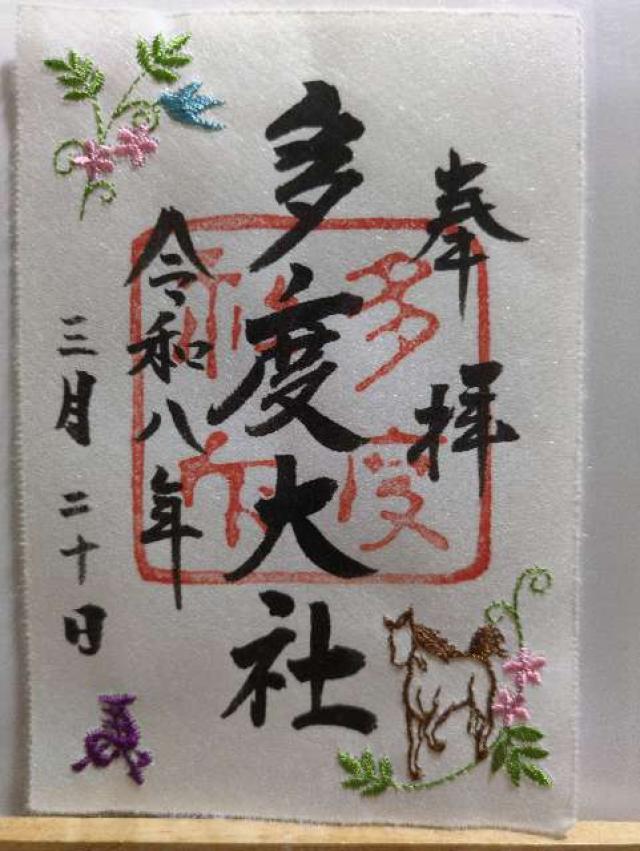 奉拝
多度大社
令和八年
三月二十日
多度